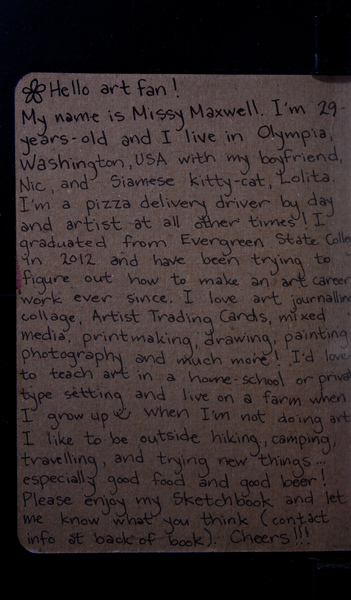 Hello art fan!
My name is Missy Maxwell. I'm 29-
years-old and I live in Olympia,
Washington, USA with my boyfriend,
Nic, and Siamese kitty-cat, Lolita.
I'm a pizza delivery driver by day
and artist at all other times! I
graduated from Evergreen State Colle
in 2012 and have been trying to
figure out how to make an art career
work ever since. I love art journallin
collage, Artist Trading Cards, mixed
media, printmaking, drawing, painting
photography and much more! I'd love
to teach art in a home-school or privat
type setting and live on a farm when
I grow up when I'm not doing art
I like to be outside hiking, camping,
travelling, and trying new things...
especially good food and good beer!
Please enjoy my Sketchbook and let
me know what you think (contact
info at back of book). Cheers!!!